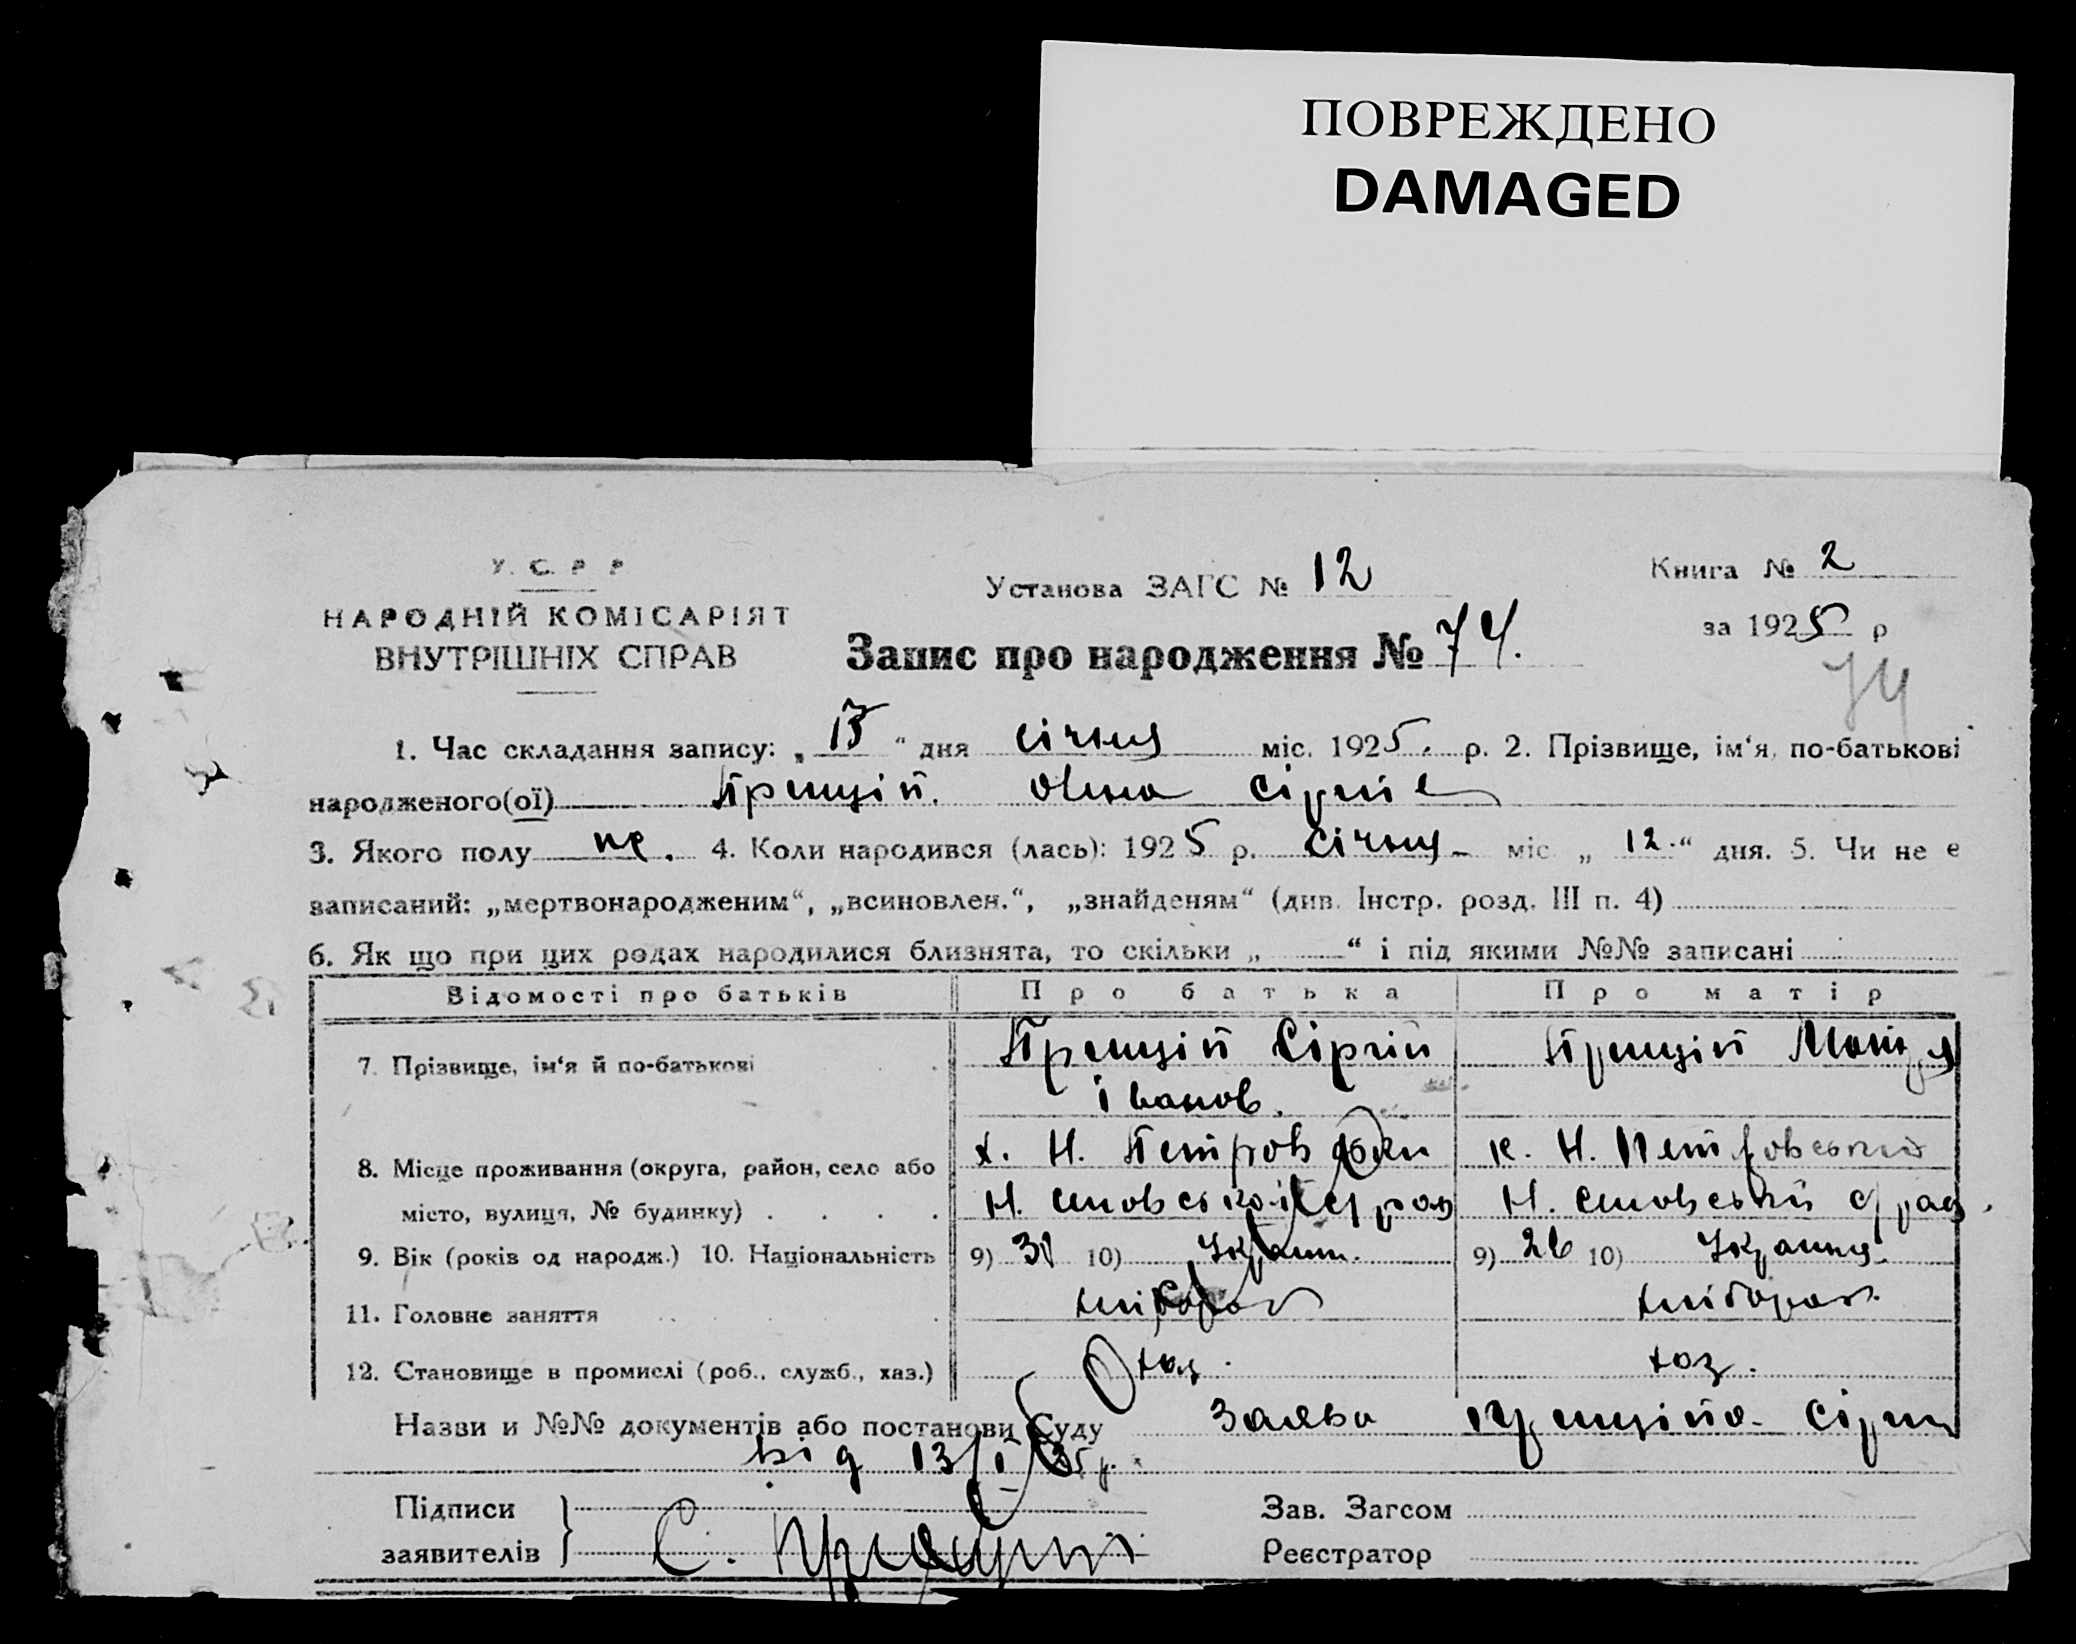 ПОВРЕЖДЕНО
DAMAGED
У. С. Р. Р
НАРОДНІЙ КОМІСАРІЯТ
ВНУТРІШНІХ СПРАВ
Установа ЗАГС № 12
Книга № 2
за 1925 р
Запис про народження № 74.
74
1. Час складання запису: „13“ дня січня міс. 1925. р. 2. Прізвище, ім‘я, по-батькові
народженого(ої)
3. Якого полу 4. Коли народився (лась): 1925 р. січня міс „12.“ дня. 5. Чи не е
записаний: „мертвонародженим“, „всиновлен.“, „знайденям“ (див. Інстр. розд. III п. 4)
6. Як що при цих родах народилися близнята, то скільки „ “ і під якими №№ записані
Відомості про батьків Про батька Про матір
7. Прізвище, ім‘я й по-батькові Сіргій
іванов.
8. Місце проживання (округа, район, село або х. Н. к. Н.
місто, вулиця, № будинку) Н. Н.
9. Вік (років од народж.) 10. Національність 9) 10) 9) 26 10)
11. Головне заняття хлібороб хлібороб.
12. Становище в промислі (роб., служб., хаз.) хаз. хаз.
Назви и №№ документів або постанови Суду Заява
від 13/I 25 р.
Підписи
заявителів С.
Зав. Загсом
Реєстратор